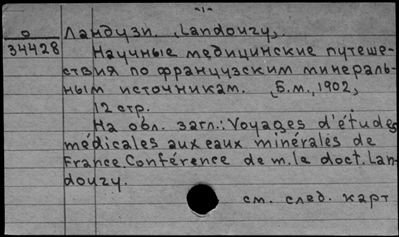 -1-
О Ландузи. (Landouzy).
34428 Научные медицинские путеше-
ствия по французским минераль-
ным источникам. [Б.м., 1902,
12 стр.
На обл. загл.: Voyages d'études
médicales aux eaux minérales de
France. Conférence de m. le doct. Lan-
douzy.
см. след. карт